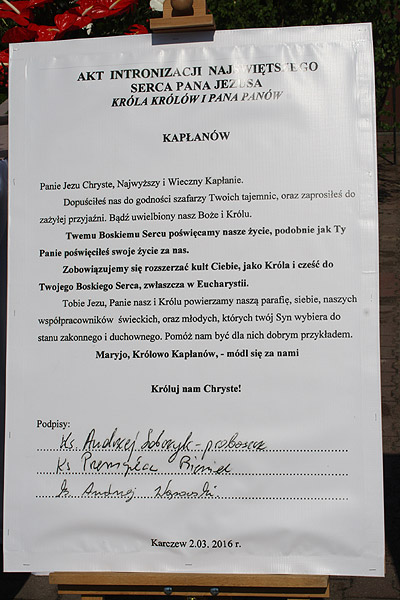 AKT INTRONIZACJI NAJŚWIĘTSZEGO
SERCA PANA JEZUSA
KRÓLA KRÓLÓW I PANA PANÓW
KAPŁANÓW
Panie Jezu Chryste, Najwyższy i Wieczny Kapłanie.
Dopuściłeś nas do godności szafarzy Twoich tajemnic, oraz zaprosiłeś do
zażyłej przyjaźni. Bądź uwielbiony nasz Boże i Królu.
Twemu Boskiemu Sercu poświęcamy nasze życie, podobnie jak Ty
Panie poświęciłeś swoje życie za nas.
Zobowiązujemy się rozszerzać kult Ciebie, jako Króla i cześć do
Twojego Boskiego Serca, zwłaszcza w Eucharystii.
Tobie Jezu, Panie nasz i Królu powierzamy naszą parafię, siebie, naszych
współpracowników świeckich, oraz młodych, których twój Syn wybiera do
stanu zakonnego i duchownego. Pomóż nam być dla nich dobrym przykładem.
Maryjo, Królowo Kapłanów, - módl się za nami
Króluj nam Chryste!
Podpisy:
Ks. Andrzej - proboszcz
Ks Przemysław
Ks Andrzej
Karczew 2.03. 2016 r.